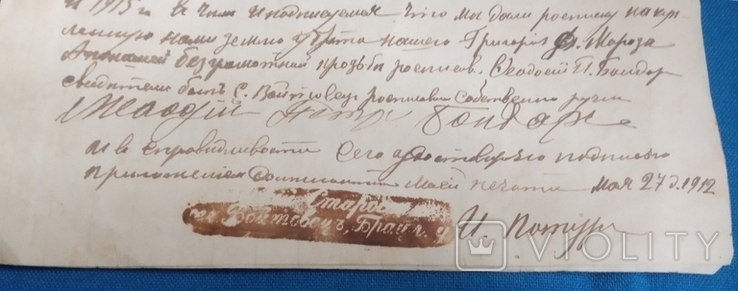 и 1913 г в чим и подписуемся что мы дали росписку на куп
ленную нами землю у брата нашего Григорія Ф. Мороза
безграмотной прозьбы росписав. Феодосій П. Бондар
свидетели були С. Войтовец росписався собственно ручно
Феодосій Бондарь
и в справидливости сего удостоверяю подписью
приложением должностной моей печати мая 27 д. 1912
Старос
сел. Войтовецъ, Брацл. у
И. Потур
VIOLITY